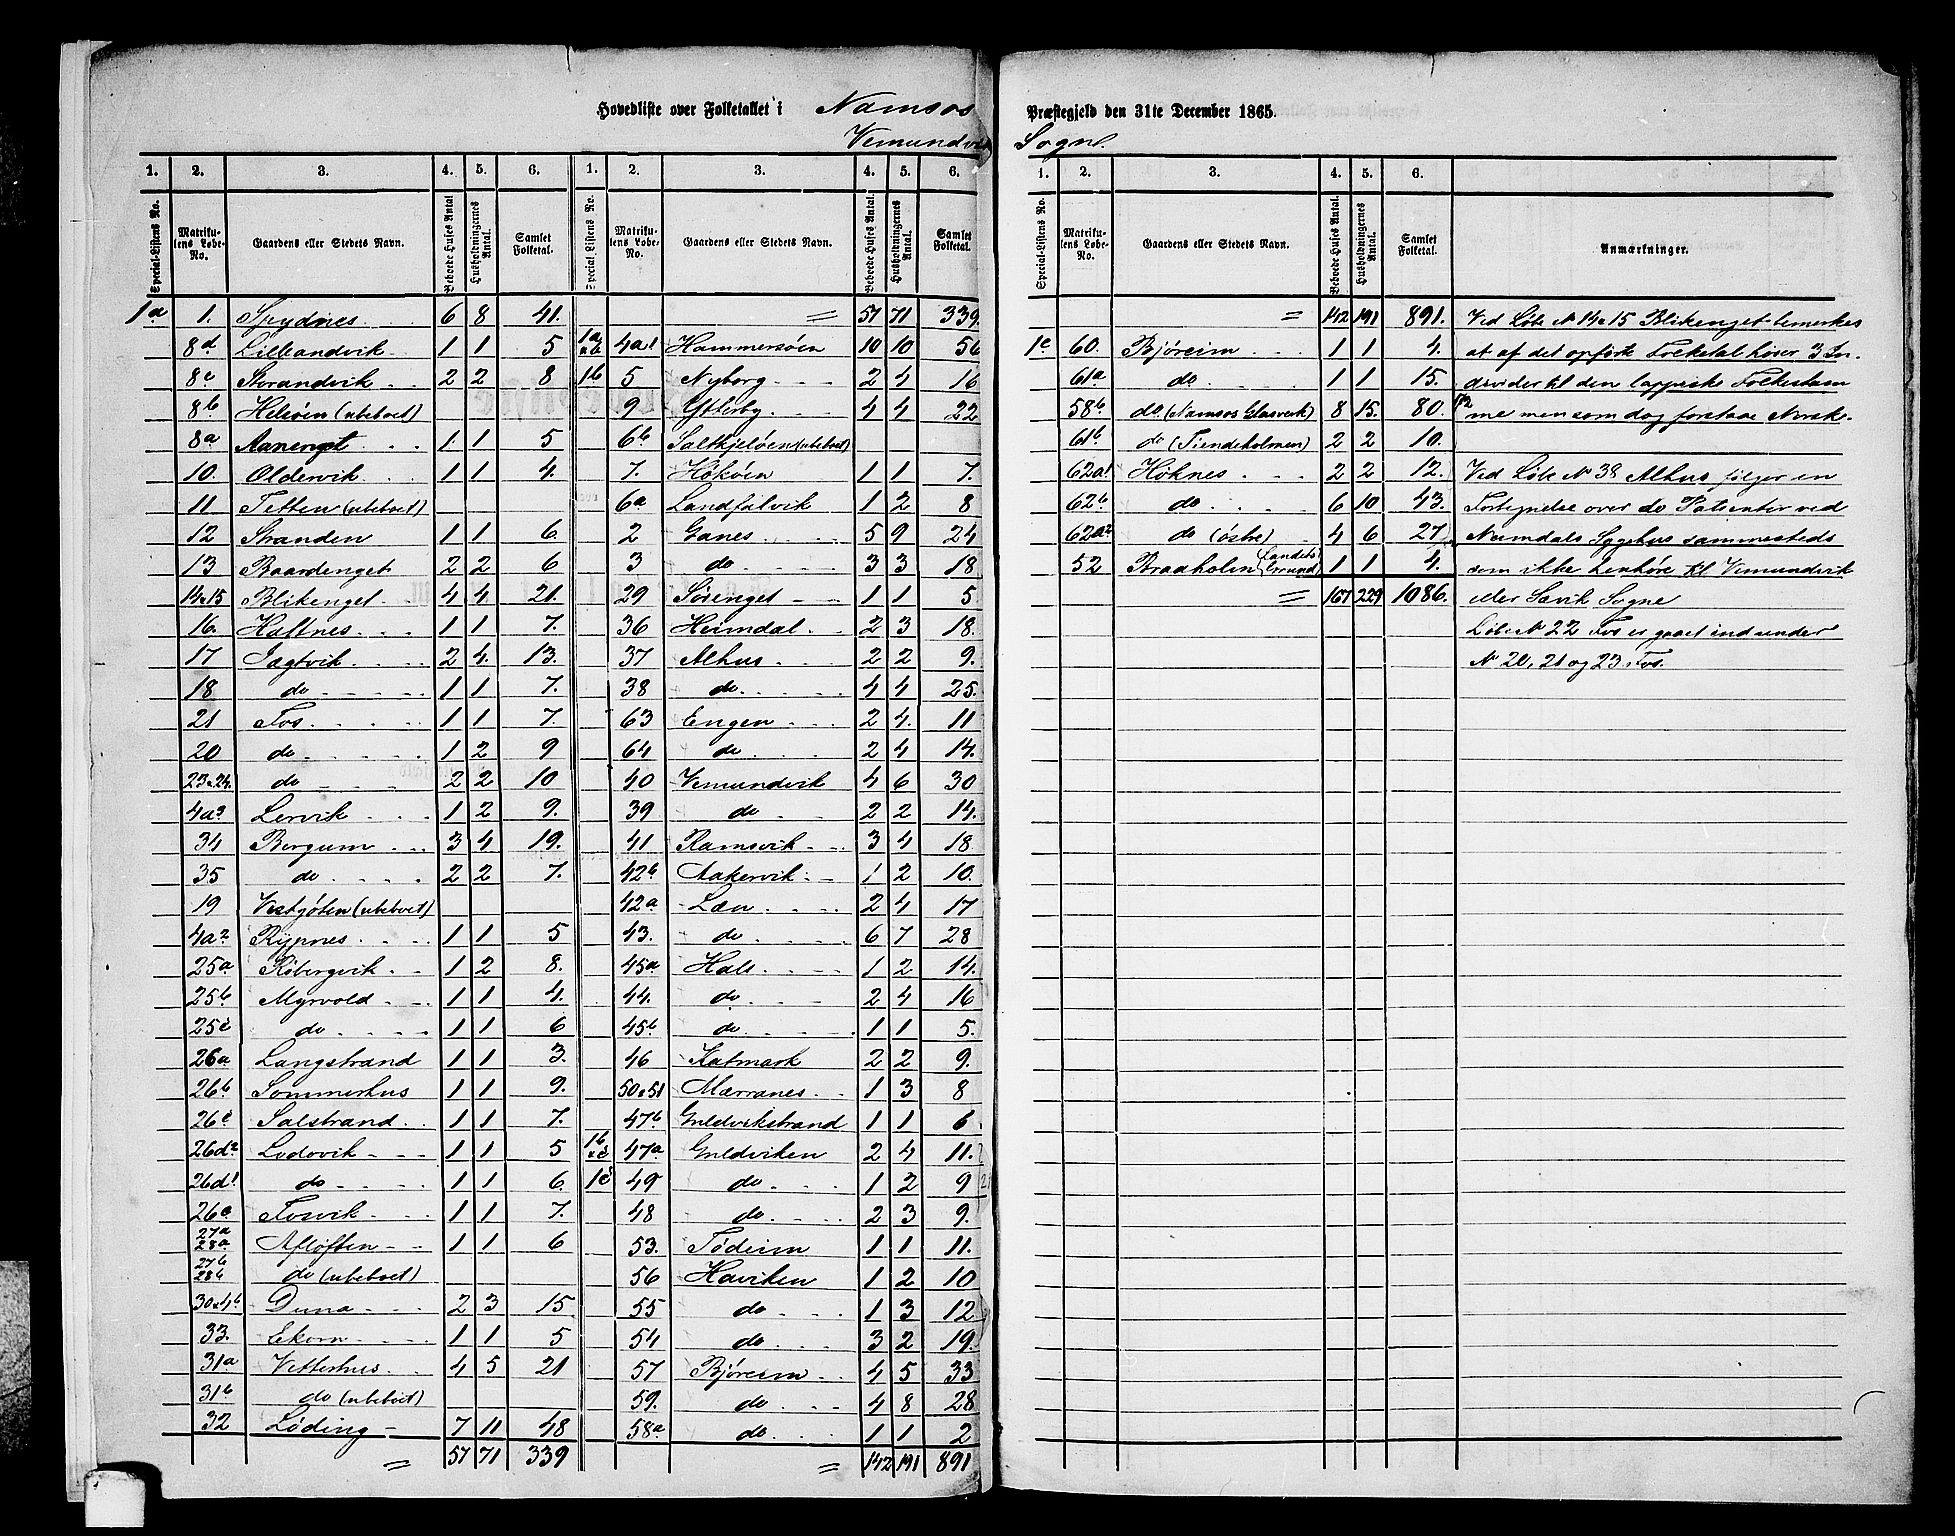 Hovedliste over Folketallet i Namsos Præstegjeld den 31te December 1865.
Vemundvik Sogn.
1. 2. 3. 4. 5. 6. 1. 2. 3. 4. 5. 6.
Special-Listens No. Matrikulens Løbe-No. Gaardens eller Stedets Navn. Beboede Huses Antal. Husholdningernes Antal. Samlet Folketal. Special-Listens No. Matrikulens Løbe-No. Gaardens eller Stedets Navn. Beboede Huses Antal. Husholdningernes Antal. Samlet Folketal.
1a 1. Spydnes 6 8 41. = 57 71 339.
8d Lilleandvik 1 1 5 1a & b 4a1 Hammersøen 10 10 56
8c Storandvik 2 2 8 1b 5 Nyborg 2 4 16
8b Helsøen (ubeboet) 9 Ytterby 4 4 22
8a Aanenget 1 1 5 6b Saltkjeløen (ubeboet)
10. Oldervik 1 1 4. 7. Hokøen 1 1 7.
11 Tetten (ubeboet) 6a Landfalvik 1 2 8
12 Stranden 1 1 6. 2 Ganes 5 9 24
13 Baardenget 2 2 6 3 do 3 3 18
14 & 15 Blikenget 4 4 21. 29 Sørenget 1 1 5
16. Kaltnes 1 1 7. 36 Heimdal 2 3 18.
17 Jagtvik 2 4. 13. 37 Alhus 2 2 9.
18 do 1 1 7. 38 do 4 4 25.
21 Fos 1 1 7. 63 Engen 2 4. 11
20 do 1 2 9 64 do 2 4 14.
23 & 24. do 2 2 10 40 Vemundvik 4 6 30
4a3 Lervik 1 2 9. 39 do 2 2 14.
34 Bergum 3 4 19. 41 Ramsvik 3 4 18
35 do 2 2 7. 42b Aakervik 1 2 10.
19 Vestgøten (ubeboet) 42a Læn 2 4 17
4a2 Rypnes 1 1 5 43. do 6 7 28
25a Røbergvik 1 2 8. 45a Hals 1 2 14.
25b Myrvold 1 1 4. 44. do 2 4 16
25c do 1 1 6 45b do 1 1 5.
26a Langstrand 1 1 3. 46 Katmark 2 2 9.
26b Sommerhus 1 1 9. 50 & 51 Mærranes 1 3 8
26c Salstrand 1 1 7. 47b Guldvikstrand 1 1 6
26d2 Lodovik 1 1 5 1b & c 47a Guldviken 2 4 11.
26d1 do 1 1 6. 1c 49 do 1 2 9
26e Fosvik 1 1 7. 48 do 2 3 9.
27a 28a Afløften 1 1 6 53. Tødeim 1 1 11.
27b 28b do (ubeboet) 56 Haviken 1 2 10
30 & 4b Duna 2 3 15. 55 do 1 3 12
33. Ekorn 1 1 5 54 do 3 2 19.
31a Vetterhus 4 5 21 57 Bjøreim 4 5 33
31b do (ubeboet) 59. do 4 8 28
32 Løding 7 11 48 58a do 1 1 2
= 57 71 339 = 142 191 891
1. 2. 3. 4. 5. 6.
Special-Listens No. Matrikulens Løbe-No. Gaardens eller Stedets Navn. Beboede Huses Antal. Husholdningernes Antal. Samlet Folketal. Anmærkninger.
= 142 191 891. Ved Løbe No 14 & 15 Blikenget bemerkes
1c 60. Bjøreim 1 1 4. at af det opførte Folketal hører 3 In-
61a do 1 1 15. divider til den lappiske Folkestam
58b do (Namsos Glasverk) 8 15. 80. me men som dog forstaae Norsk.
61b do (Tiendeholmen) 2 2 10.
62a1 Høknes 2 2 12. Ved Løbe No 38 Alhus følger en
62b do 6 10 43. Fortegnelse over de Patienter ved
62a2 do (østre) 4 6 27 Namdals Sygehus sammesteds
52 Braaholm (Landets Grund) 1 1 4. som ikke henhøre til Vemundvik
= 167 229 1086. eller Sævik Sogne
Løbe No 22 Fos er gaaet ind under
No 20, 21 og 23 Fos.